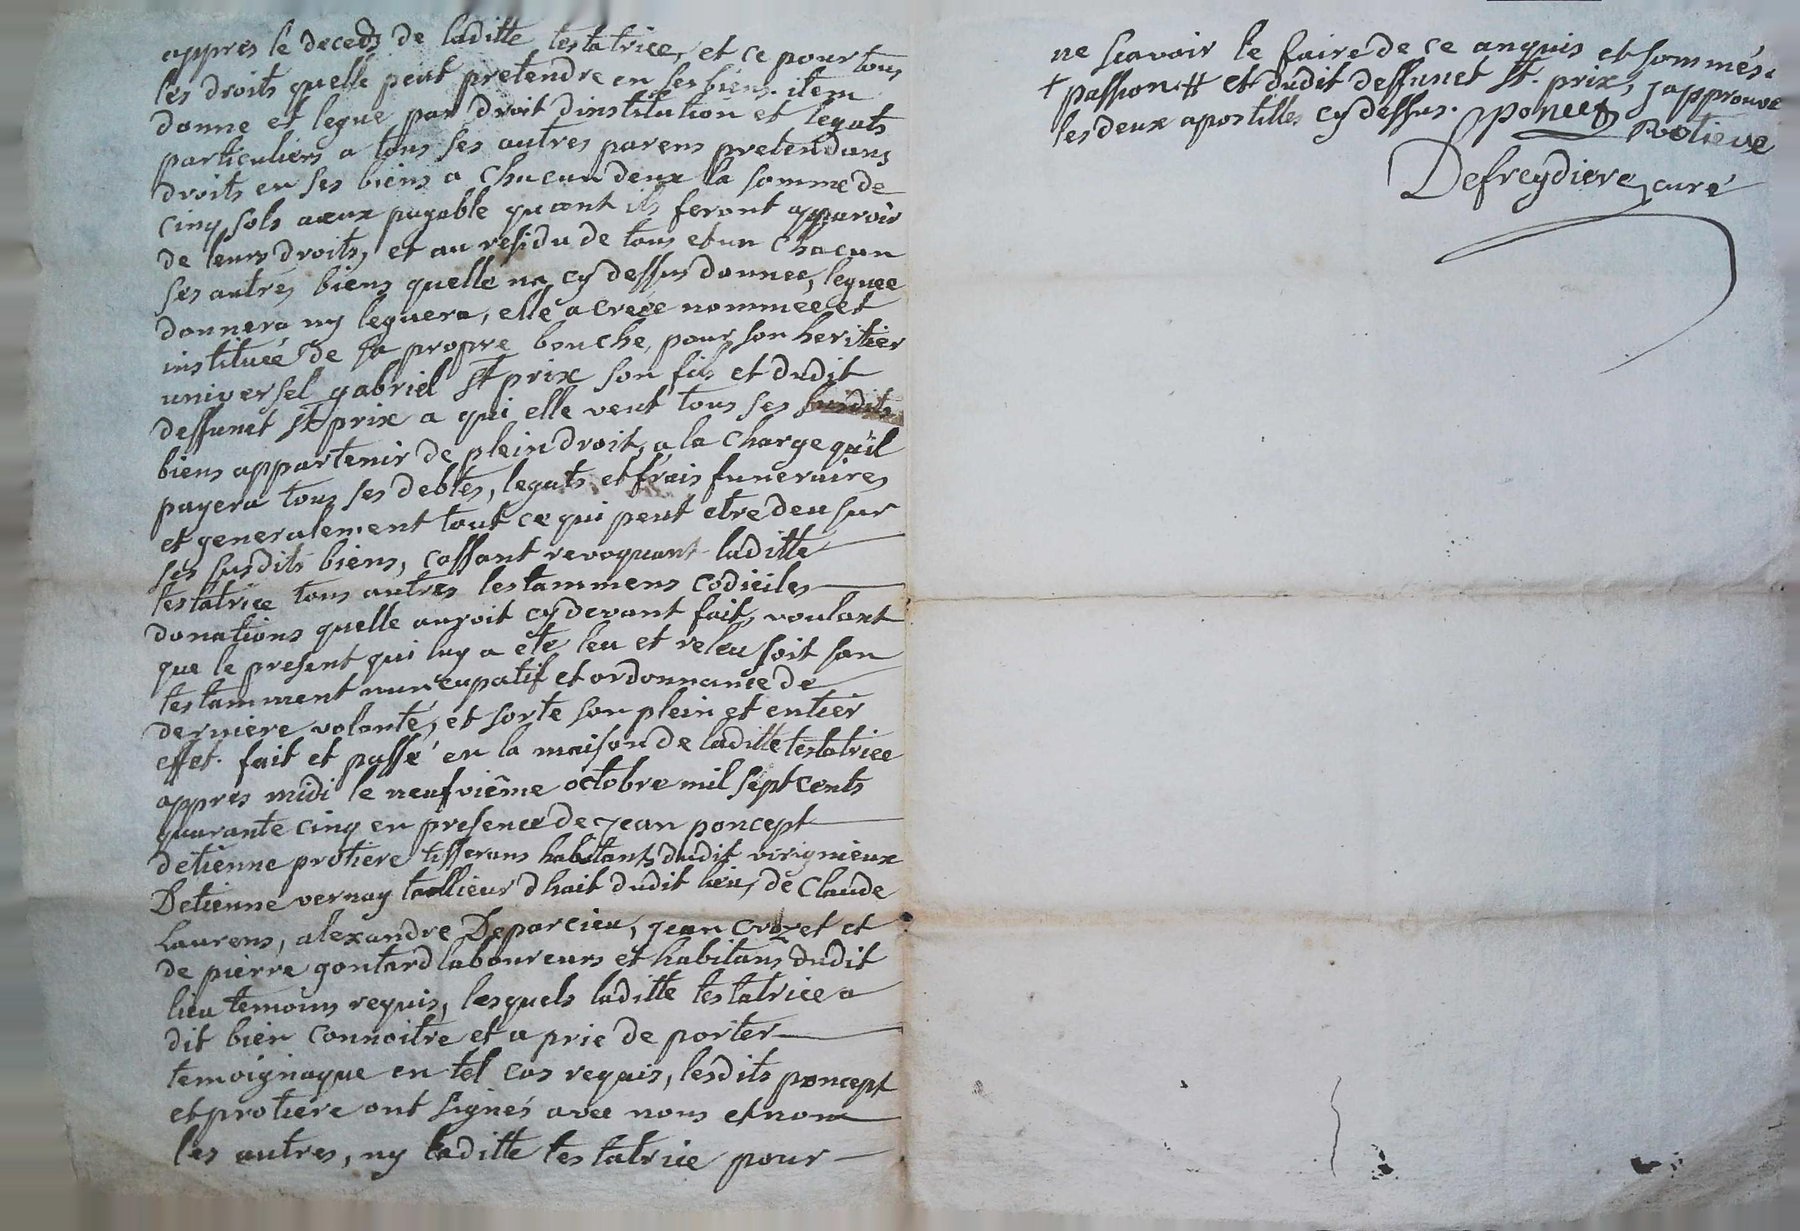 appres le deceds de laditte testatrice, et ce pour tous
les droits quelle peut pretendre en ses biens. item
donne et legue par droit dinstitution et legats
particuliers a tous ses autres parens pretendans
droits en ses biens a chacun deux la somme de
cinq sols aeux payable quant ils feront apparoir
de leurs droits, et au residu de tous et un chacun
ses autres biens quelle na cy dessus donnee, leguee
donnera ny leguera, elle a creee nommee et
instituée de sa propre bouche, pour son heritier
universel gabriel st prix son fils et dudit
deffunct st prix a qui elle veut tous ses susdits
biens appartenir de plein droit, a la charge quil
payera tous ses debtes, legats et frais funeraires
et generalement tout ce qui peut etre deu sur
ses susdits biens, cassant revoquant laditte
testatrice tous autres testammens codiciles
donations quelle auroit cy devant fait, voulant
que le present qui luy a ete leu et releu soit son
testamment nuncupatif et ordonnance de
derniere volonte, et sorte son plein et entier
effet. fait et passé en la maison de laditte testatrice
appres midi le neufvième octobre mil sept cents
quarante cinq en presence de jean poncept
detienne protiere tisserans habitants dudit virignieux
Detienne vernay taillieur dhait dudit lieu, de Claude
Laurens, alexandre Deparcieu, jean crozet et
de pierre gontard laboureurs et habitans dudit
lieu temoins requis, lesquels laditte testatrice a
dit bien connoitre et a prie de porter
temoignague en tel cas requis, lesdits poncept
et protiere ont signés avec nous et non
les autres, ny laditte testatrice pour
ne scavoir le faire de ce anquis et sommés.
+ passion # et dudit deffunct st. prix, japprouve
les deux apostilles cy dessus. poncet protiere
Defreydiere curé